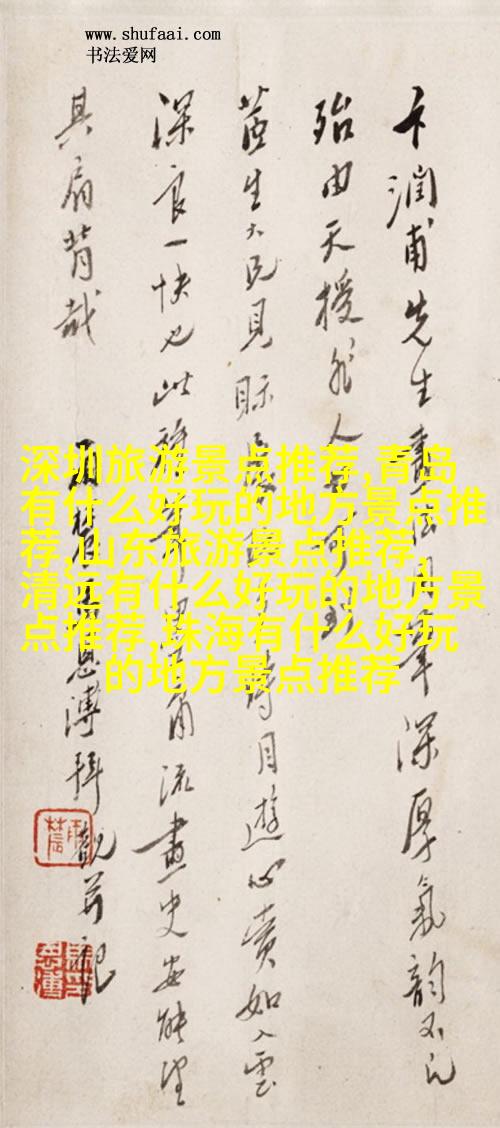 www.shufaai.com
书法爱网
卞润甫先生画
深厚气韵不凡
殆由天授非人
茝生大兄见眎
时目游心赏如入云
深良一快也此
角流画史安能望
其肩背哉
恩溥拜观并记
深圳旅游景点推荐,青岛
有什么好玩的地方景点推
荐,山东旅游景点推荐,
清远有什么好玩的地方景
点推荐,珠海有什么好玩
的地方景点推荐